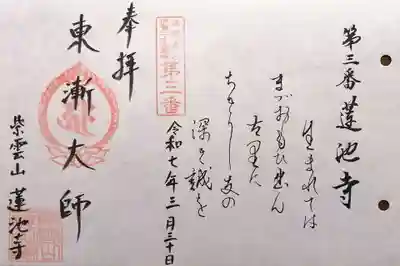 第三番 蓮池寺
生まれては
まづおもひ出ん
古里に
ちぎりし友の
深き誠を
令和七年三月三十日
第三番
奉拝
東漸大師
紫雲山 蓮池寺